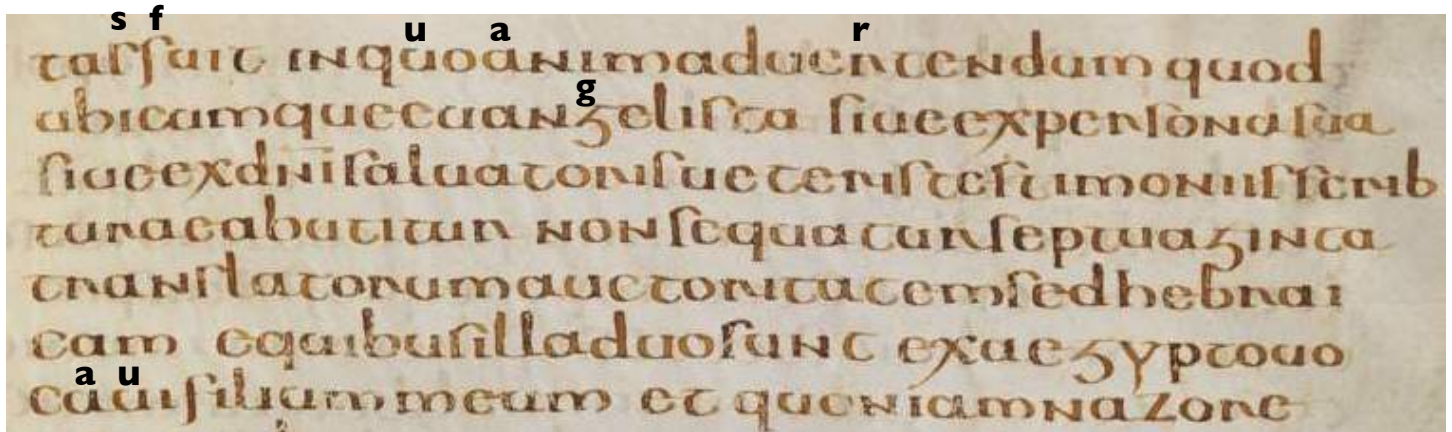 s f u a r
tasfuit inquoanimaduertendum quod
g
ubicumqueeuangelista siueexpersonasua
siueexdnisaluatorisueteristestimoniisscrib
turaeabutitur nonsequaturseptuaginta
translatorumauctoritatemsedhebrai
cam equibusilladuosunt exaegyptouo
a u
cauifiliummeum et quoniamnazore